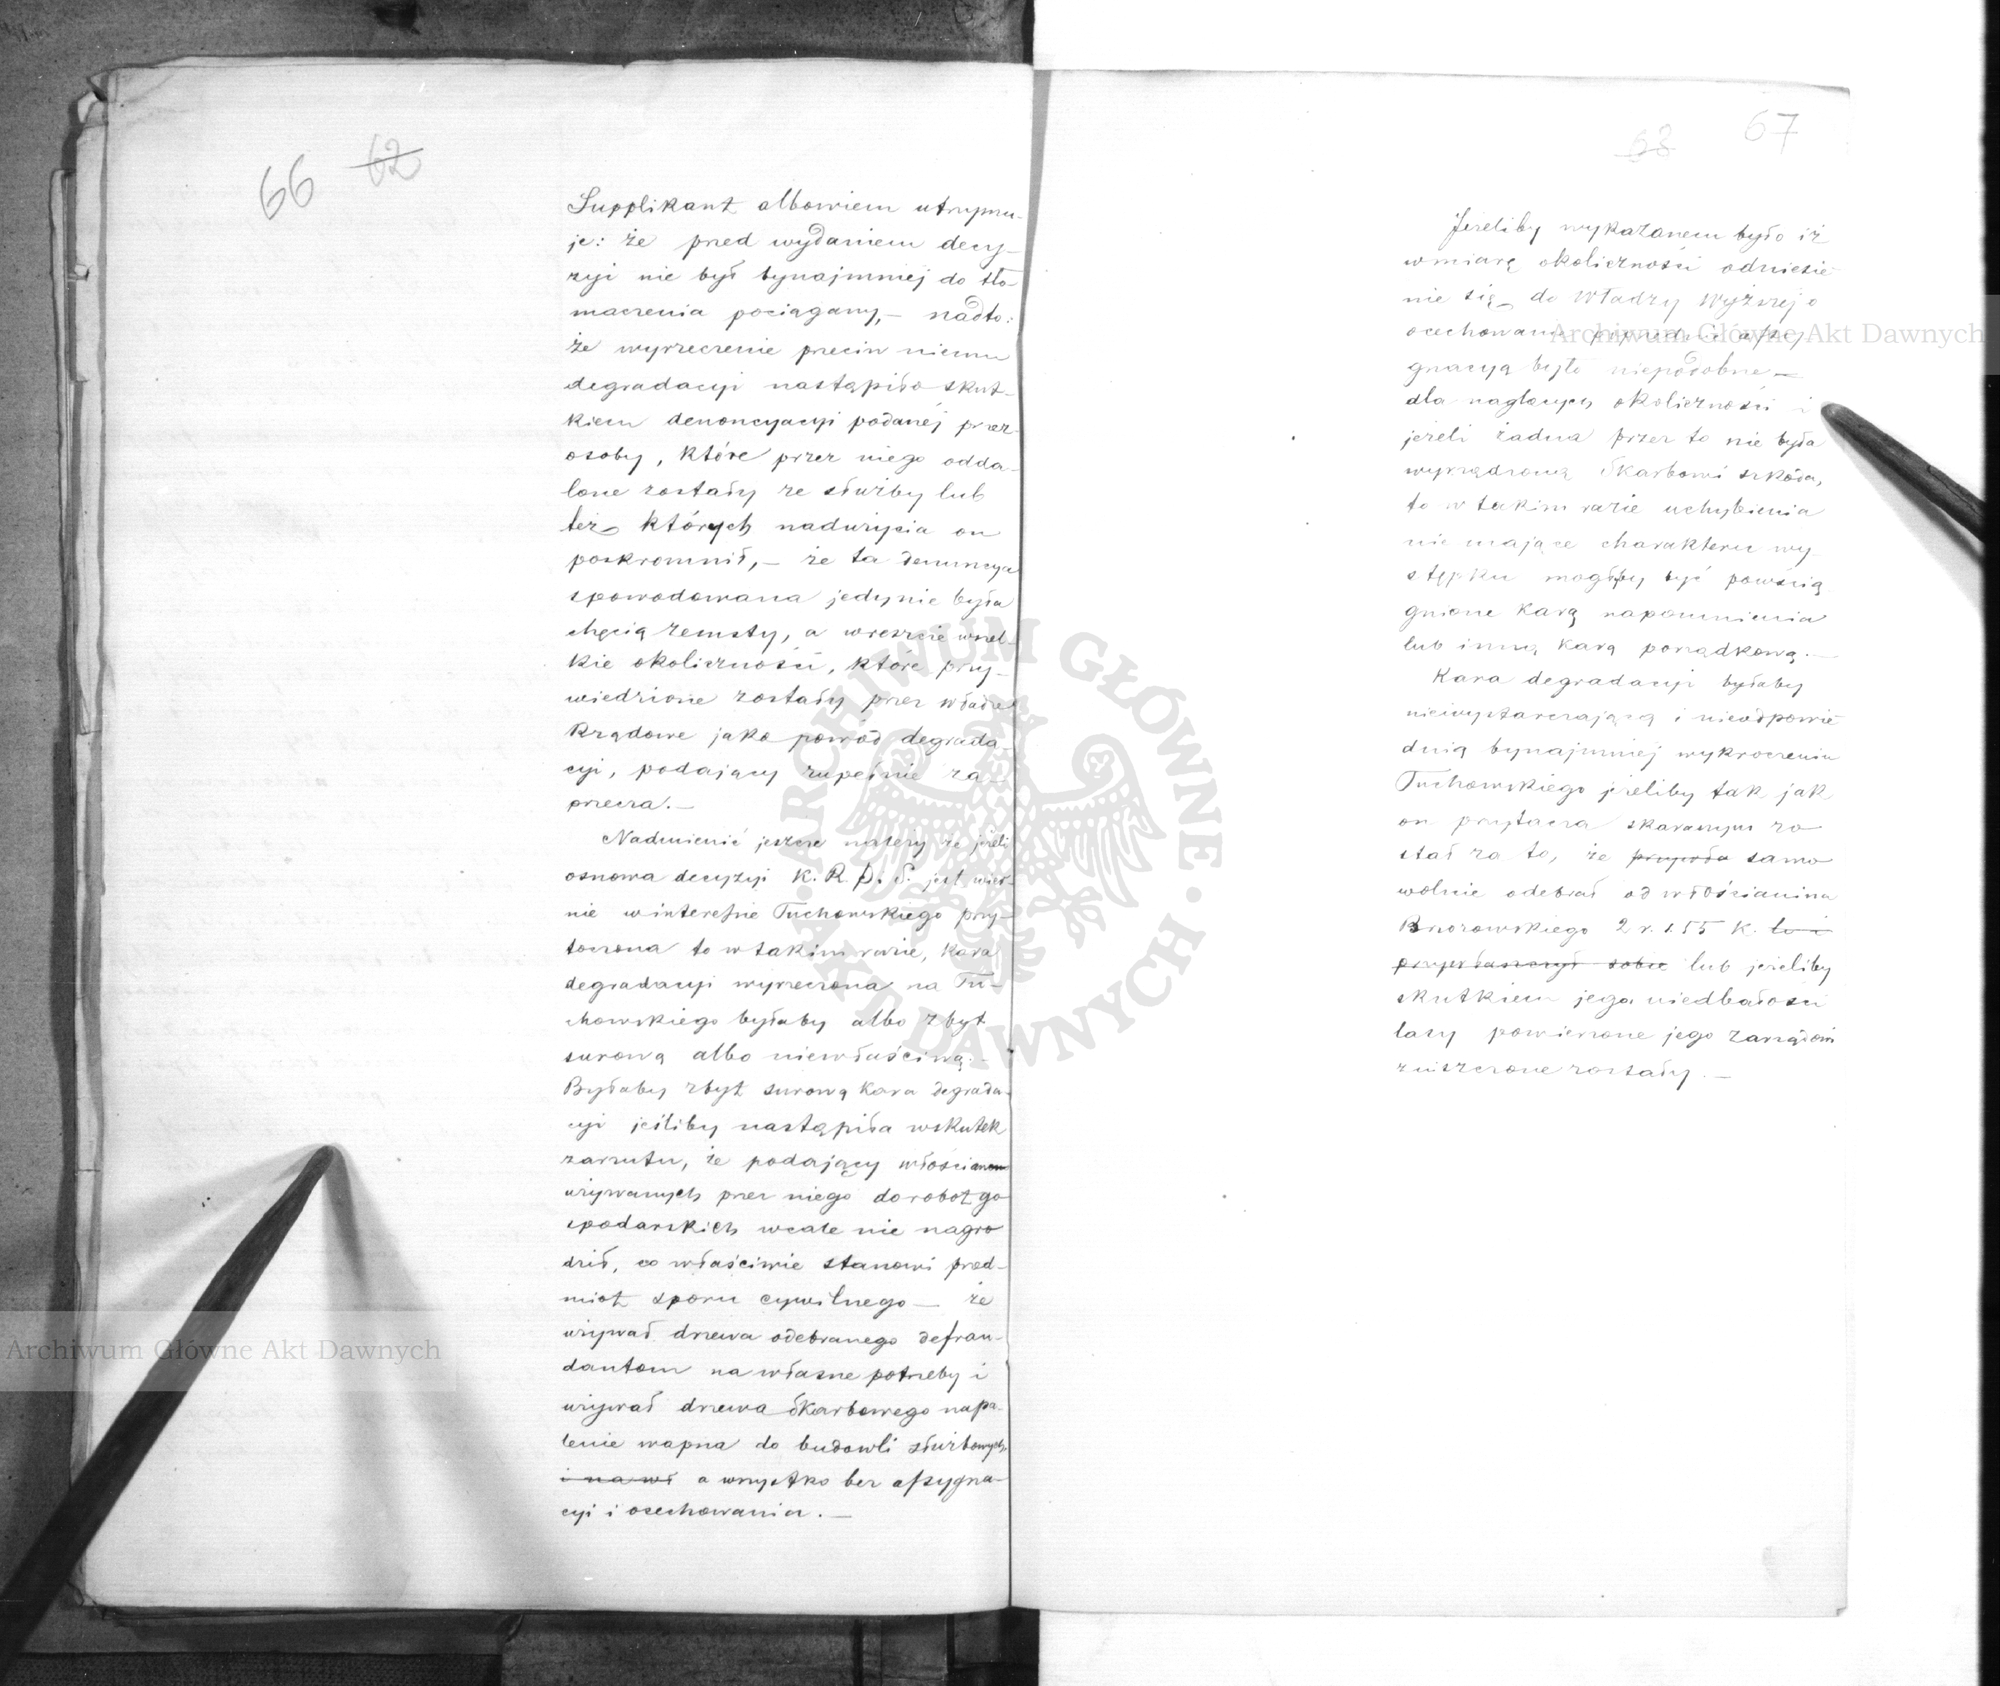 66 62
Supplikant albowiem utrzymu-
je: że przed wydaniem decy-
zyi nie był bynajmniej do tło-
maczenia pociągany, — nadto:
że wyrzeczenie przeciw niemu
degradacyi nastąpiło skut-
kiem denoncyacyi podanéj przez
osoby, które przez niego odda-
lone zostały ze służby lub
też których nadużycia on
poskromnił, — że ta denuncya
spowodowana jedynie była
chęcią zemsty, a wreszcie wszel-
kie okoliczności, które przy-
wiedzione zostały przez władze
Rządowe jako powód degrada-
cyi, podający zupełnie za-
przecza. —
Nadmienić jeszcze należy że jeżeli
osnowa decyzyi K. R. P. S. jest wier-
nie w interesie Tuchowskiego przy-
toczona to w takim razie, kara
degradacyi wyrzeczona na Tu-
chowskiego byłaby albo zbyt
surową albo niewłaściwą. —
Byłaby zbyt surową kara degrada-
cyi jeśliby nastąpiła wskutek
zarzutu, że podający włościanom
używanych przez niego do robót go
spodarskich wcale nie nagro
dził, co właściwie stanowi przed-
miot sporu cywilnego — że
używał drzewa odebranego defrau-
dantom na własne potrzeby i
używał drzewa Skarbowego na pa-
lenie wapna do budowli służbowych
i na wł a wszystko bez assygna-
cyi i ocechowania. —
68 67
Jeżeliby wykazanem było iż
w miarę okoliczności odniesie
nie się do Władzy wyższej o
ocechowanie poprzednie assy
gnacyą było niepodobne —
dla nagłących okoliczności i
jeżeli żadna przez to nie była
wyrządzoną Skarbowi szkoda,
to w takim razie uchybienia
nie mające charakteru wy
stępku mogłyby być powścią
gnione karą napomnienia
lub inną karą porządkową. —
Kara degradacyi byłaby
niewystarczającą i nieodpowie
dnią bynajmniej wykroczeniu
Tuchowskiego jeżeliby tak jak
on przytacza skazanym zo
stał za to, że przywła samo
wolnie odebrał od włościanina
Brzozowskiego 2 r. s. 55 K. to i
przywłaszczył sobie lub jeżeliby
skutkiem jego niedbałości
lasy powierzone jego zarządowi
zniszczone zostały. —
Archiwum Główne Akt Dawnych
Archiwum Główne Akt Dawnych
ARCHIWUM GŁÓWNE AKT DAWNYCH